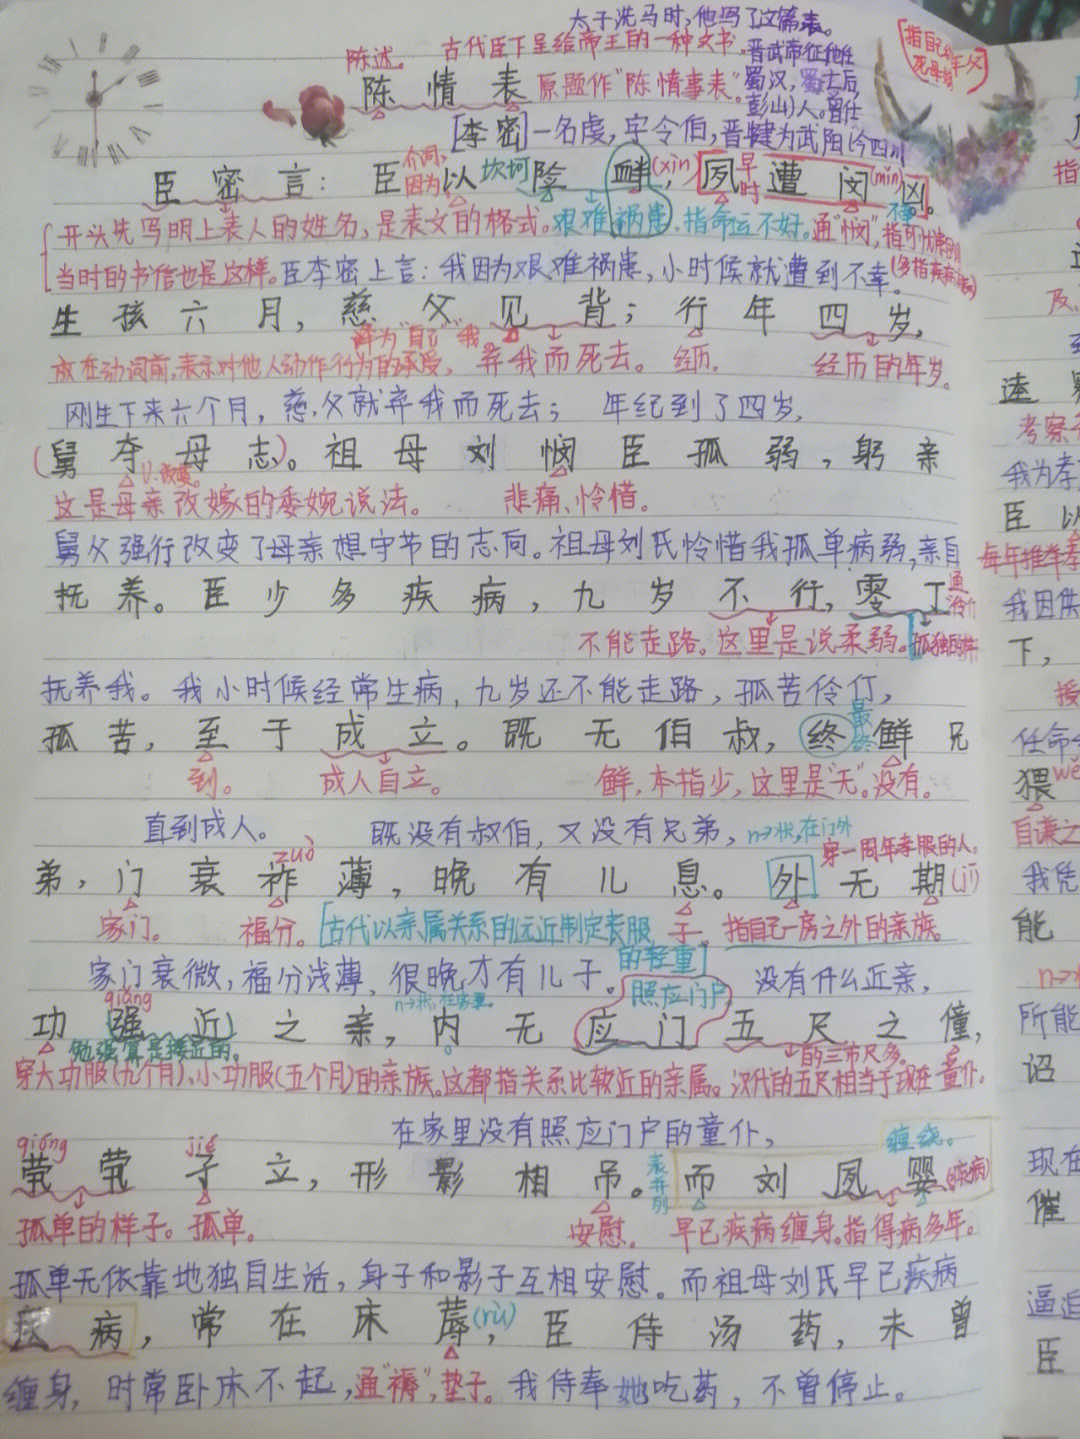 太子洗马时,他写了这篇表。
陈述。 古代臣下呈给帝王的一种文书。晋武帝征他任
陈情表 原题作“陈情事表”。蜀汉,蜀亡后,
彭山)人。曾仕
[李密]一名虔,字令伯,晋犍为武阳(今四川
指自己的
臣密言:臣以险衅(xìn),夙遭闵(mǐn)凶。
介词,因为 坎坷 早时 不幸。
开头先写明上表人的姓名,是表文的格式。艰难祸患,指命运不好。通“悯”,指可忧患的事
当时的书信也是这样。臣李密上言:我因为艰难祸患,小时候就遭到不幸。
生孩六月,慈父见背;行年四岁,
译为“自己”“我”。
放在动词前,表示对他人动作行为的承受, 弃我而死去。 经历。 经历的年岁。
刚生下来六个月,慈父就弃我而死去; 年纪到了四岁,
(舅夺母志)。祖母刘悯臣孤弱,躬亲
v.改变。
这是母亲改嫁的委婉说法。 悲痛、怜惜。
舅父强行改变了母亲想守节的志向。祖母刘氏怜惜我孤单病弱,亲自
抚养。臣少多疾病,九岁不行,零丁
通“伶仃
不能走路。这里是说柔弱。孤独的样
抚养我。我小时候经常生病,九岁还不能走路,孤苦伶仃,
孤苦,至于成立。既无伯叔,终鲜兄
最终
到。 成人自立。 鲜,本指少,这里是“无”。没有。
直到成人。 既没有叔伯,又没有兄弟,n→状,在门外
zuò 穿一周年孝服的人。
弟,门衰祚薄,晚有儿息。外无期(jī)
家门。 福分。[古代以亲属关系的远近制定丧服 子。 指自己一房之外的亲族。
的轻重]
家门衰微,福分浅薄,很晚才有儿子。 照应门户 没有什么近亲,
qiǎng n→状,在家里。
功强近之亲,内无应门五尺之僮,
勉强算是接近的。 的三市尺多。
穿大功服(九个月)、小功服(五个月)的亲族。这都指关系比较近的亲属。 汉代的五尺相当于现在 童仆。
在家里没有照应门户的童仆,
qióng jié 缠绕。
茕茕孑立,形影相吊。而刘夙婴(疾病)
表并列
孤单的样子。孤单。 安慰。 早已疾病缠身。指得病多年。
孤单无依靠地独自生活,身子和影子互相安慰。而祖母刘氏早已疾病
疾病,常在床蓐(rù),臣侍汤药,未曾
缠身,时常卧床不起,通“褥”,垫子。我侍奉她吃药,不曾停止。
考察
我为孝
臣以
每年推举孝
我因供
下,
授
任命
猥 wěi
自谦之
我凭
能
n→状
所能
诏
现在
催
逼迫
臣